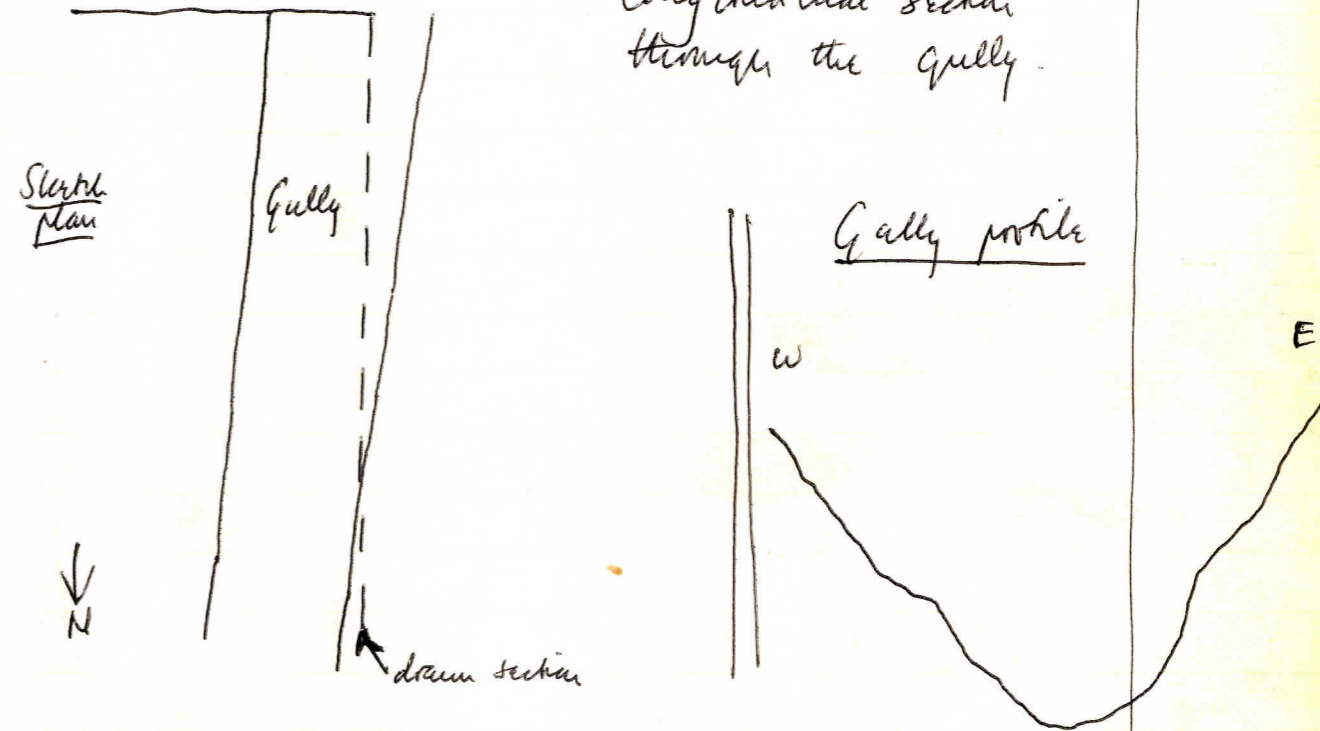 longitudinal section
through the gully.
Sketch
plan
Gully
Gully profile
W
E
N
drawn section